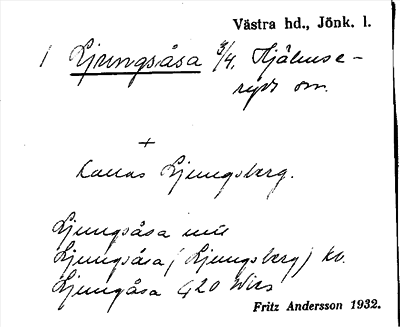 Västra hd., Jönk. l.
1 Ljungsåsa 3/4. Hjälmse-
ryds sn.
+
kallas Ljungsberg.
Ljungsåsa
Ljungsåsa (Ljungsberg) kb.
Ljungåsa G20 Wies
Fritz Andersson 1932.